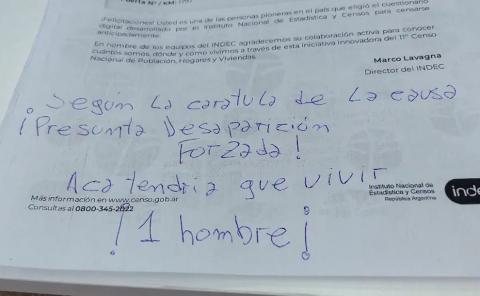 ¡Felicitaciones! Usted es una de las personas pioneras en el país que eligió el cuestionario
digital desarrollado por el Instituto Nacional de Estadística y Censos para censarse
anticipadamente.
En nombre de los equipos del INDEC agradecemos su colaboración activa para conocer
cuántos somos, dónde y cómo vivimos a través de esta iniciativa innovadora del 11° Censo
Nacional de Población, Hogares y Viviendas.
Marco Lavagna
Director del INDEC
Según La caratula de La causa
¡Presunta Desaparición
Forzada!
Aca tendria que vivir
Más información en www.censo.gob.ar
Consultas al 0800-345-2022
Instituto Nacional de
Estadística y Censos
República Argentina
inde
¡1 hombre!